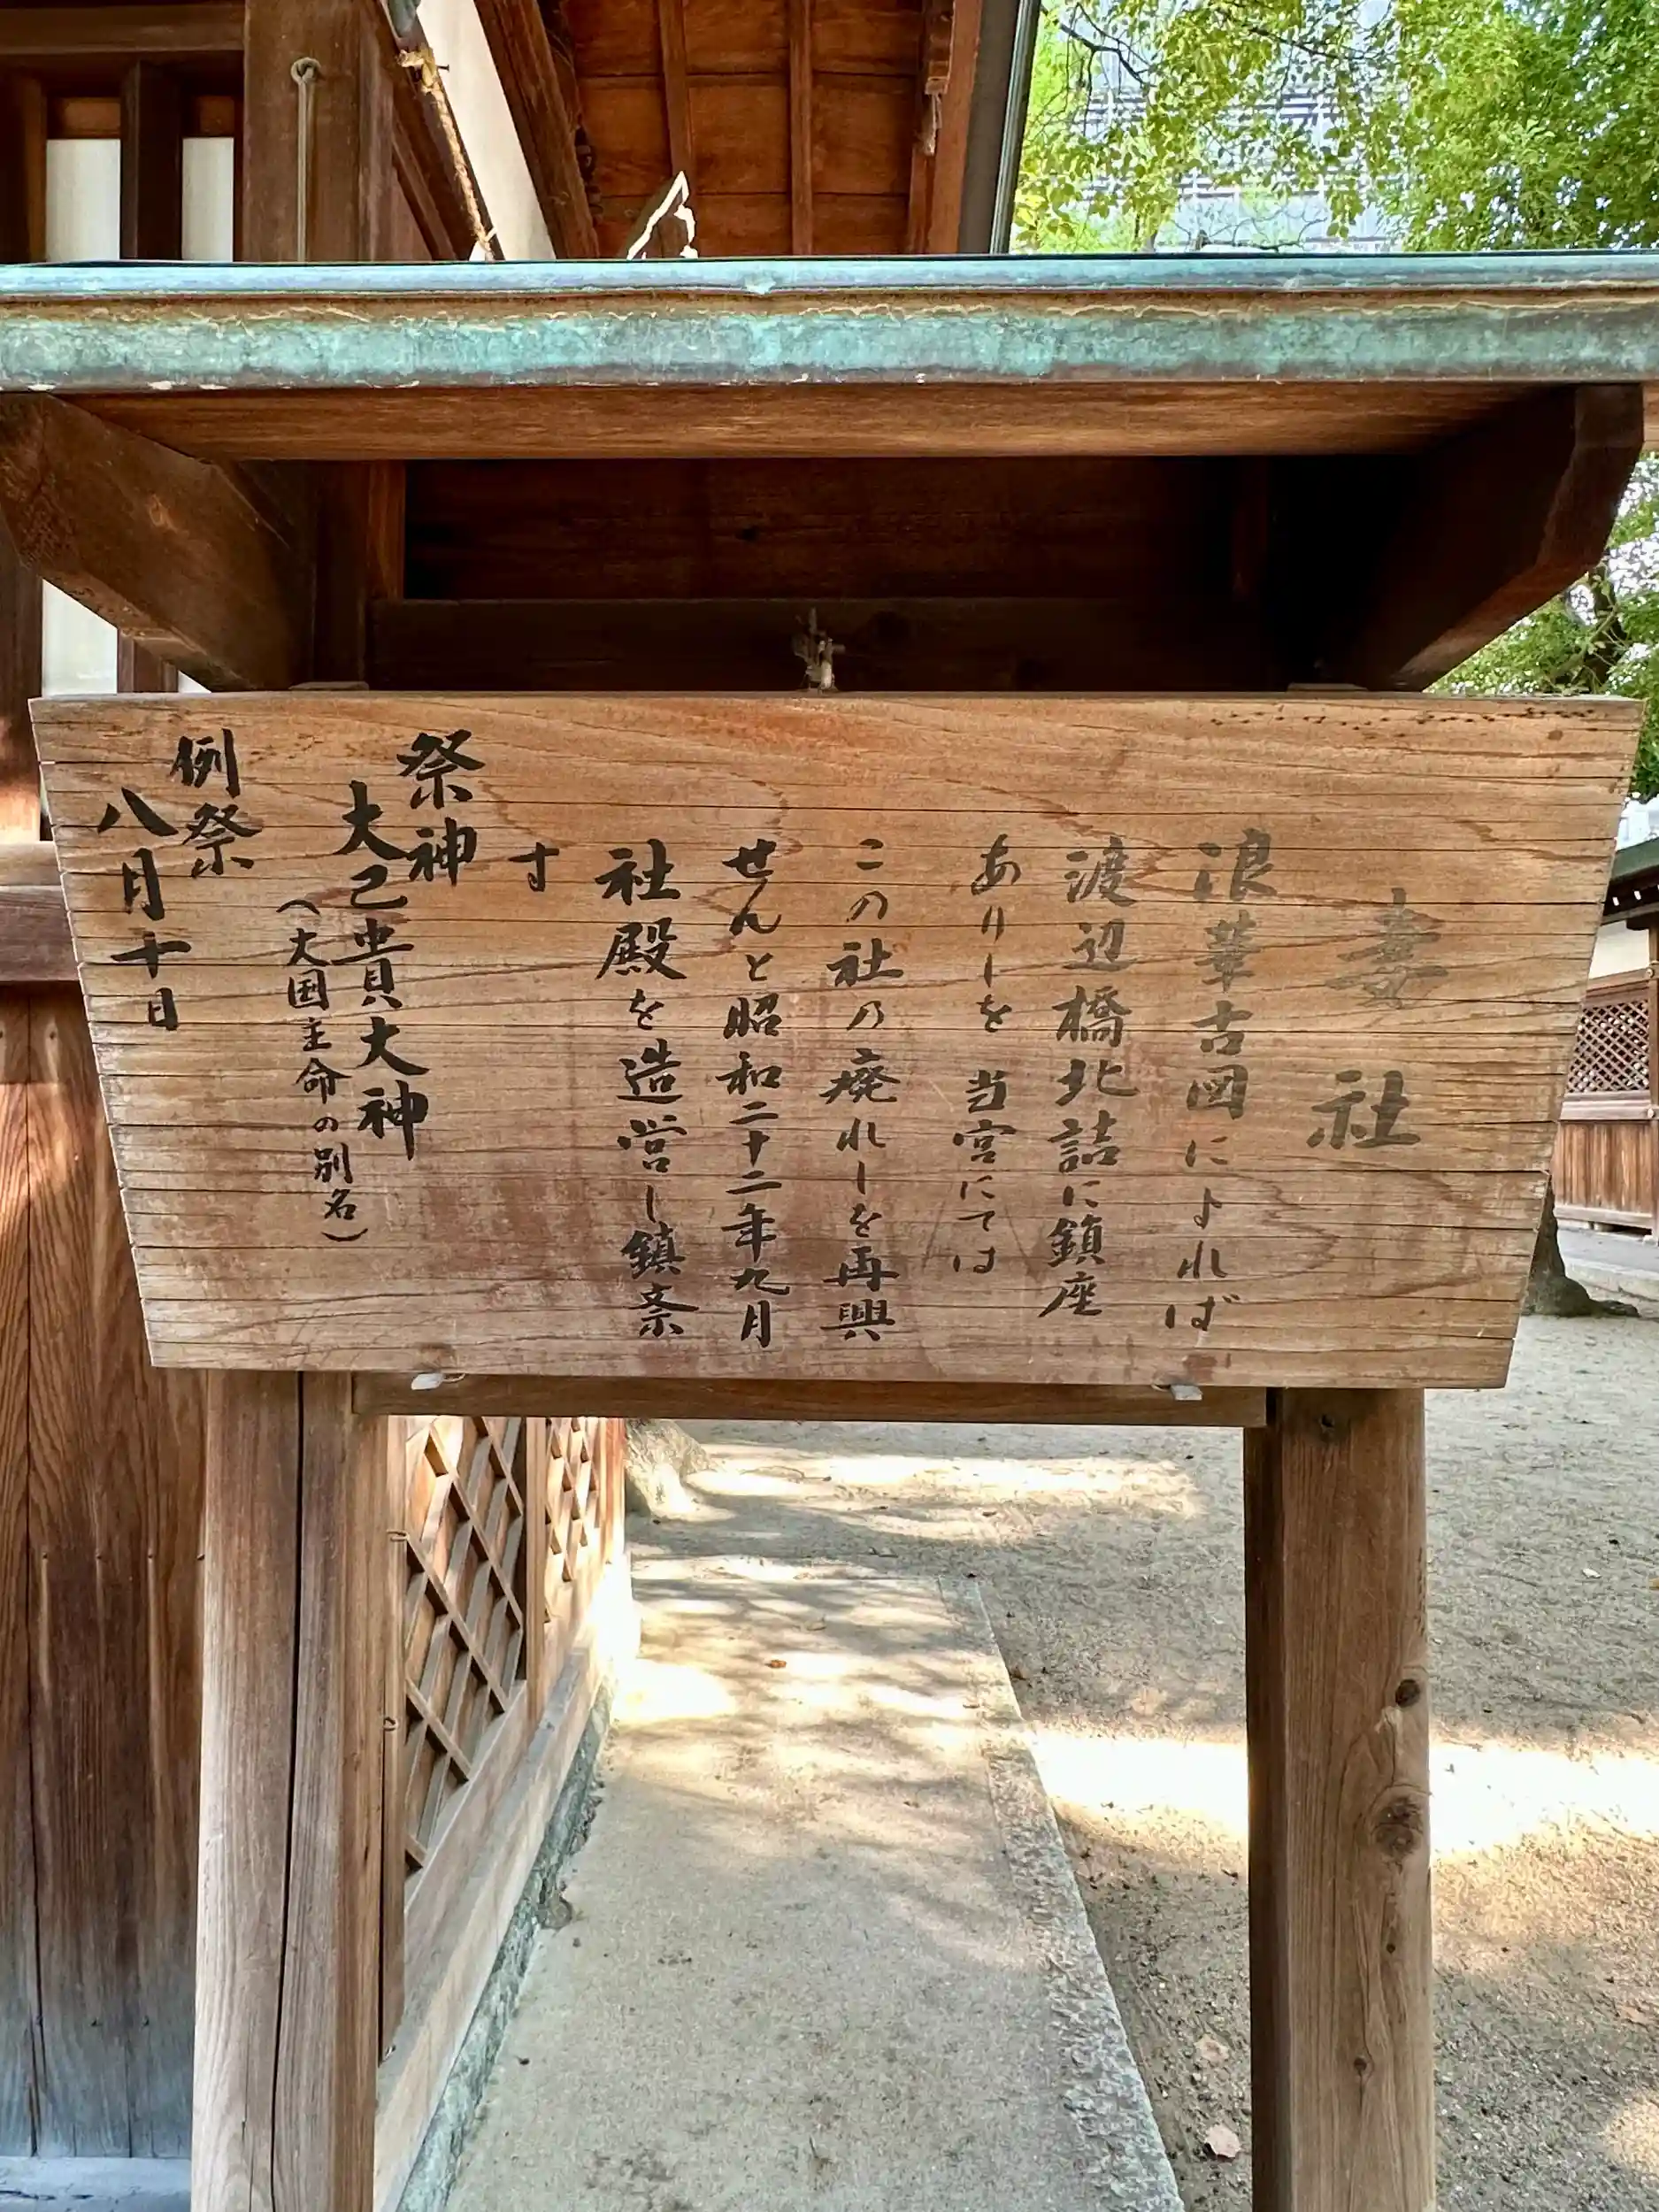 妻社
浪華古図によれば
渡辺橋北詰に鎮座
ありしを当宮にては
この社の廃れしを再興
せんと昭和二十二年九月
社殿を造営し鎮祭
す
祭神
大己貴大神
（大国主命の別名）
例祭
八月十日